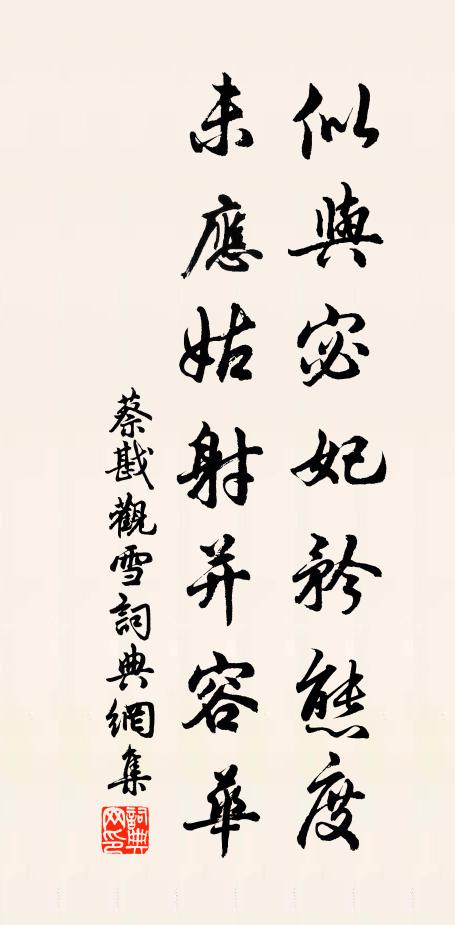 似與宓妃矜態度
未應姑射并容華
蔡戡觀雪詞典網集
詞典网印